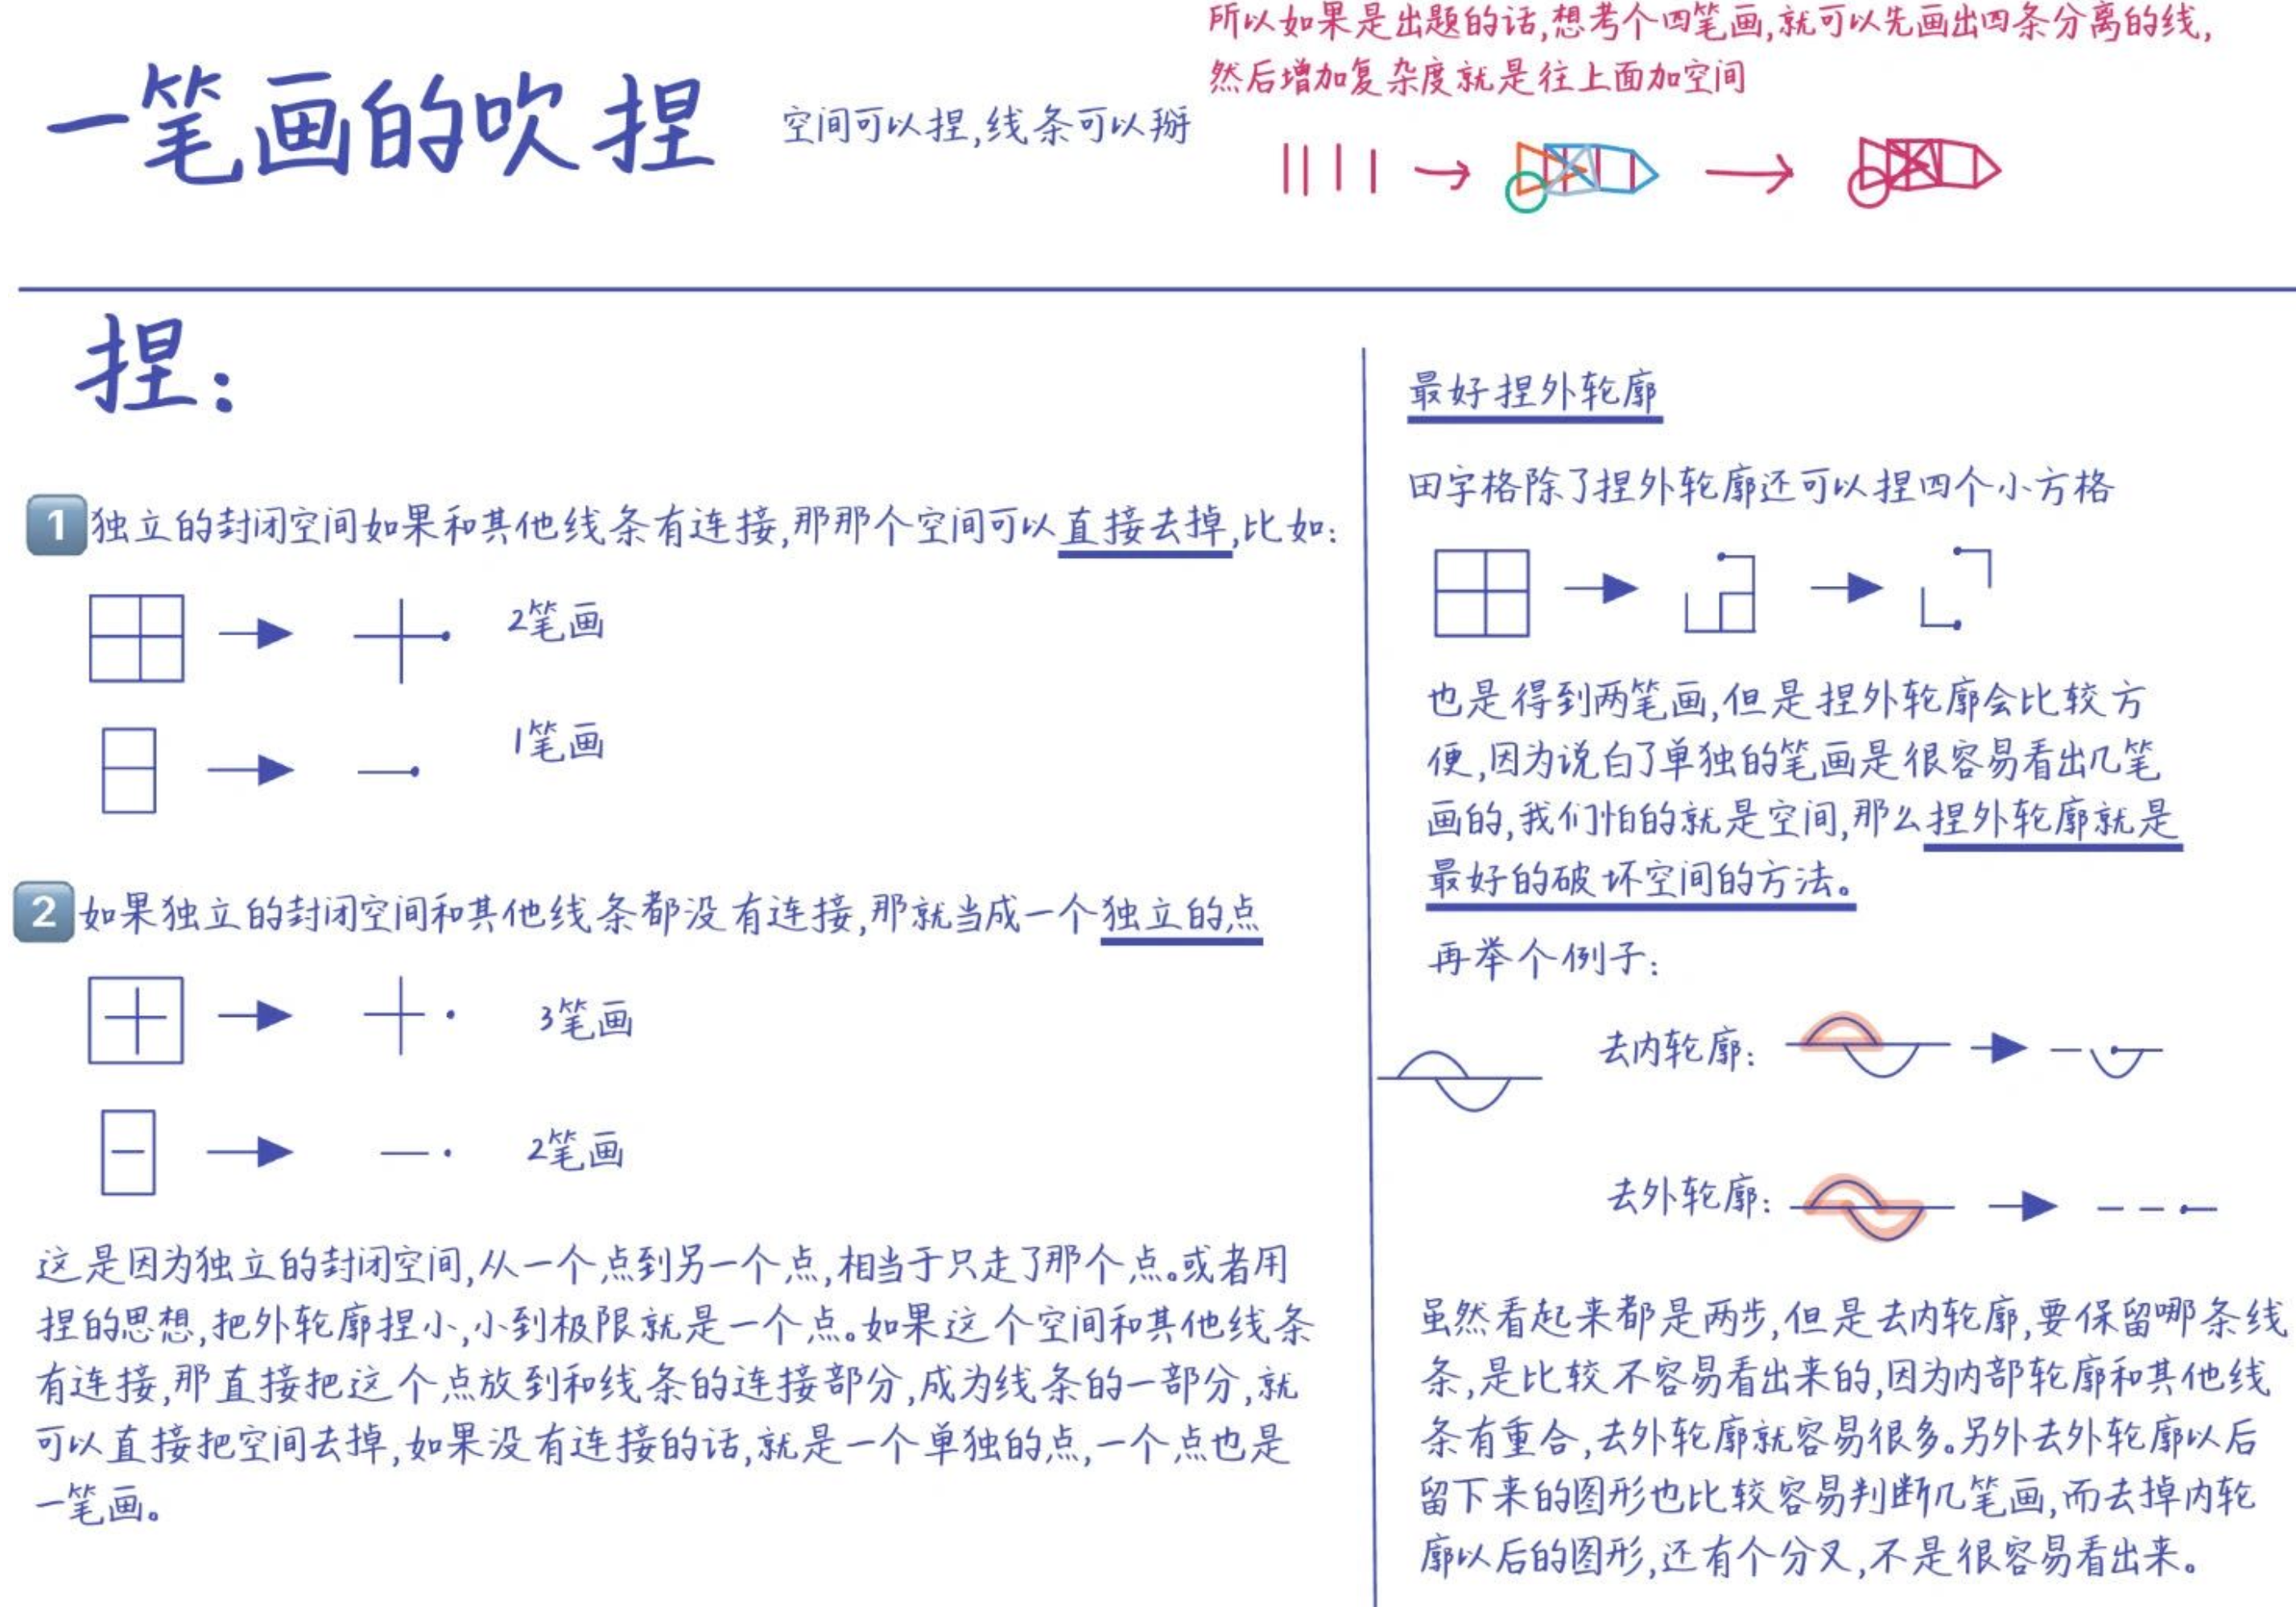 所以如果是出题的话,想考个四笔画,就可以先画出四条分离的线,
然后增加复杂度就是往上面加空间
一笔画的吹捏
空间可以捏,线条可以掰
捏:
1 独立的封闭空间如果和其他线条有连接,那那个空间可以直接去掉,比如:
2笔画
1笔画
2 如果独立的封闭空间和其他线条都没有连接,那就当成一个独立的点
3笔画
2笔画
这是因为独立的封闭空间,从一个点到另一个点,相当于只走了那个点。或者用
捏的思想,把外轮廓捏小,小到极限就是一个点。如果这个空间和其他线条
有连接,那直接把这个点放到和线条的连接部分,成为线条的一部分,就
可以直接把空间去掉,如果没有连接的话,就是一个单独的点,一个点也是
一笔画。
最好捏外轮廓
田字格除了捏外轮廓还可以捏四个小方格
也是得到两笔画,但是捏外轮廓会比较方
便,因为说白了单独的笔画是很容易看出几笔
画的,我们怕的就是空间,那么捏外轮廓就是
最好的破坏空间的方法。
再举个例子:
去内轮廓:
去外轮廓:
虽然看起来都是两步,但是去内轮廓,要保留哪条线
条,是比较不容易看出来的,因为内部轮廓和其他线
条有重合,去外轮廓就容易很多。另外去外轮廓以后
留下来的图形也比较容易判断几笔画,而去掉内轮
廓以后的图形,还有个分叉,不是很容易看出来。